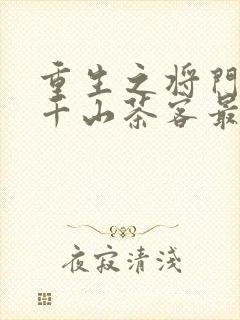 重生之将门
千山茶客最
夜寂清淺